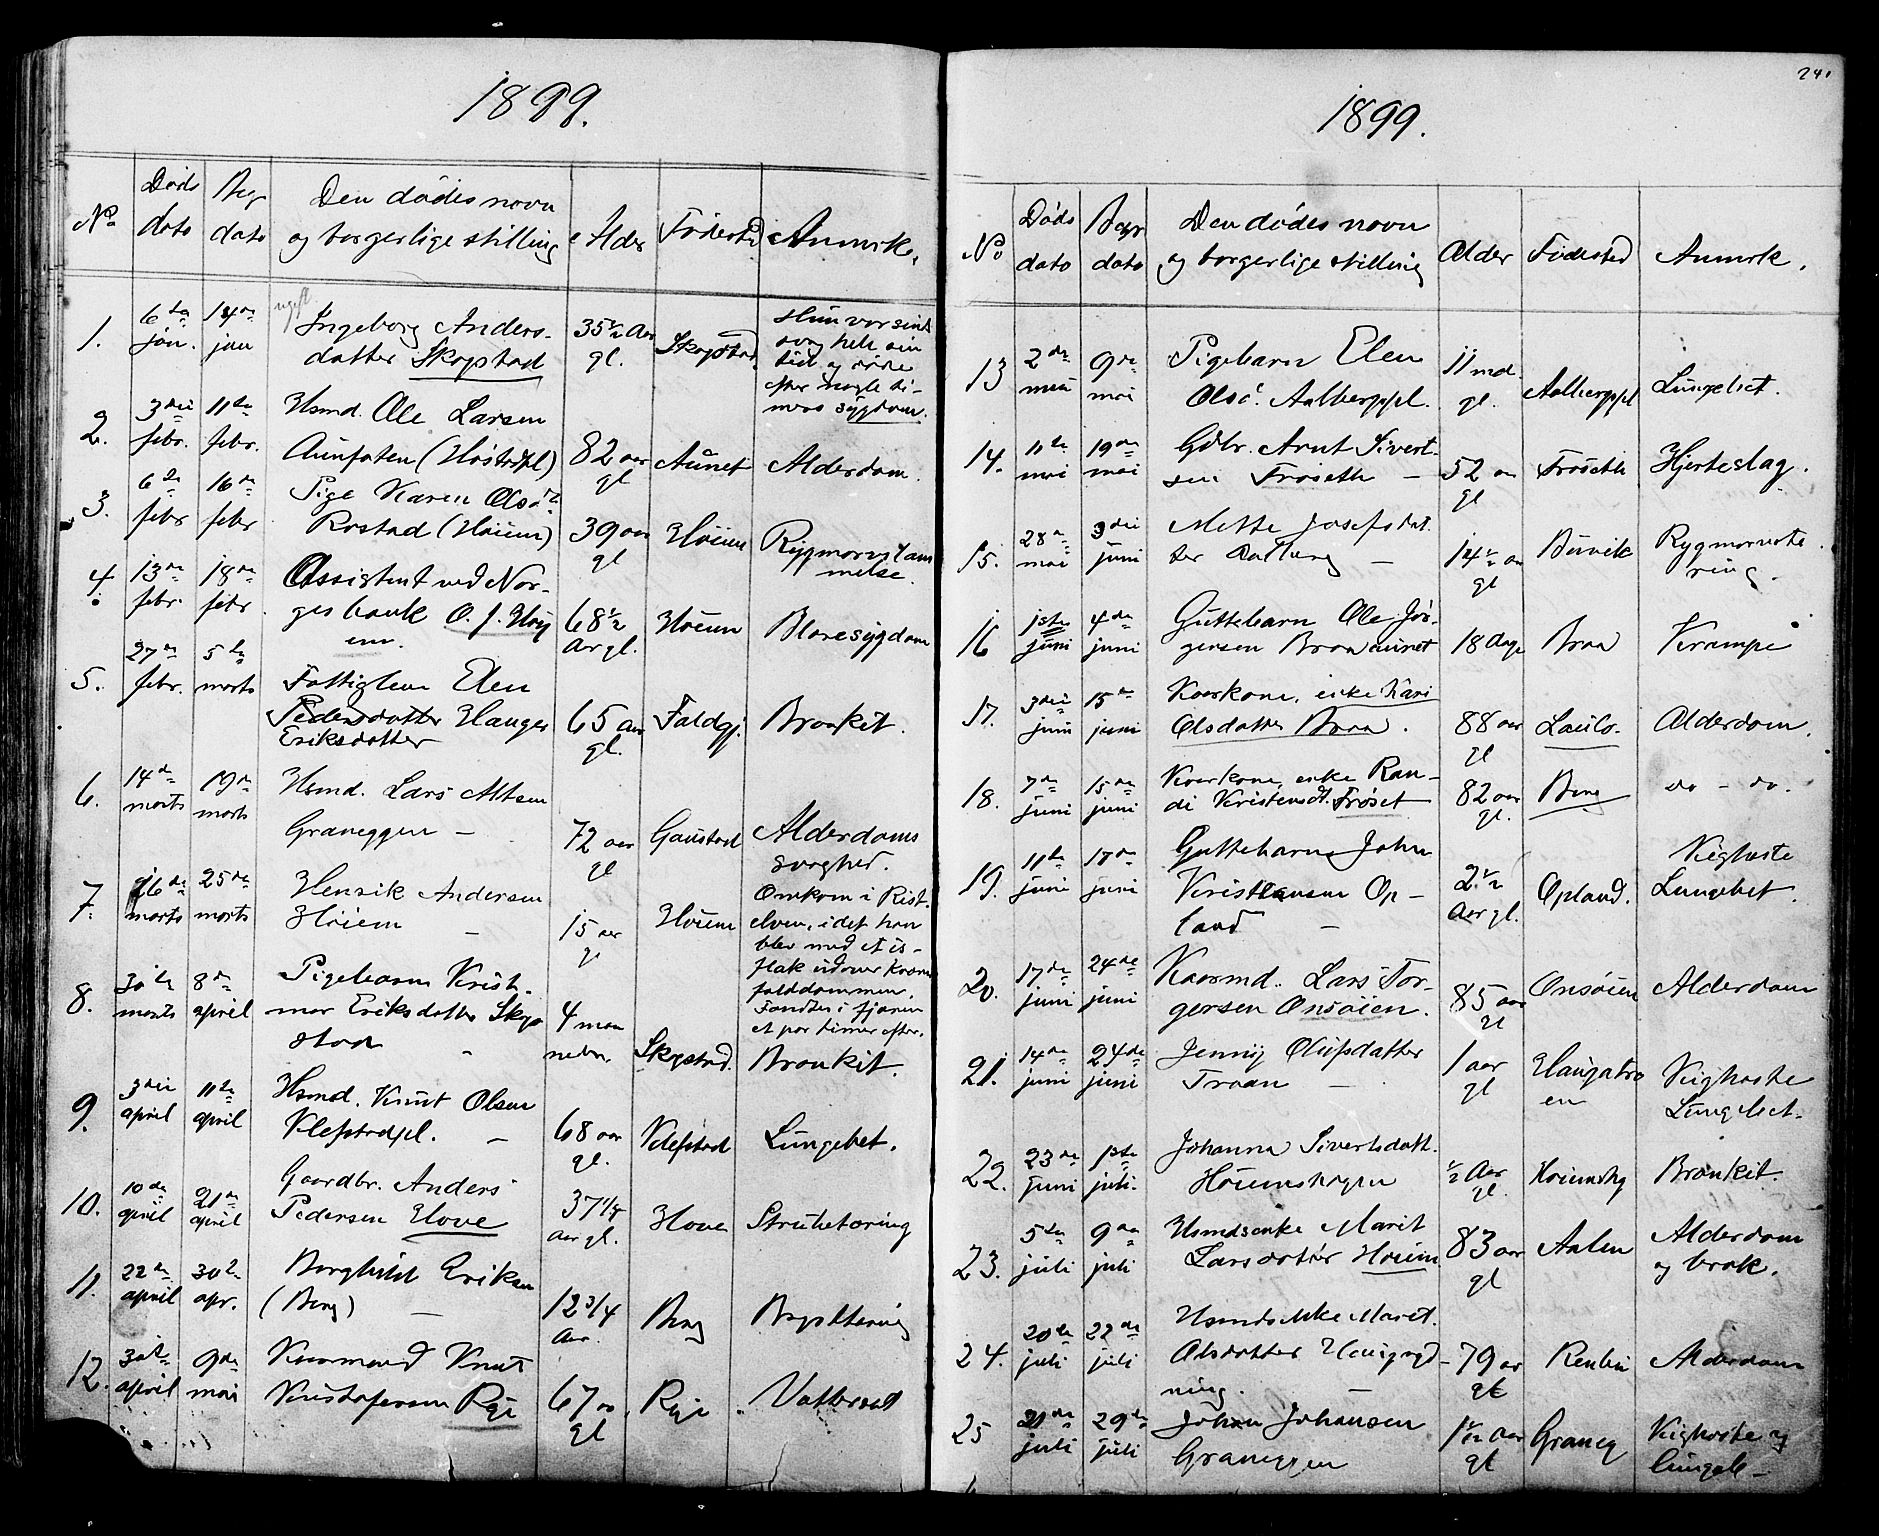 1899.
No
Døds dato
Beg dato
Den dødes navn og borgerlige stilling
Alder
Fødested
Anmrk.
1. 6te jan. 14de jan ugift Ingeborg Anders-
datter Skogstad 35 1/2 Aar gl. Skogstad. Hun var sind
svag hele sin
tid og døde
efter nogle ti-
mers sygdom.
2. 3die febr. 11te febr. Hsmd. Ole Larsen
Aunfaten (Høstadpl) 82 aar gl Aunet Alderdom.
3. 6te febr 16de febr Pige Karen Olsd.
Rostad (Høiem) 39 aar gl Høiem Rygmarvslam
melse.
4. 13de febr. 18de febr. Assistent ved Nor-
ges bank O. J. Høy
em. 68 1/2 Aar gl. Høiem Blæresygdom
5. 27de febr. 5te marts Fattiglem Elen
Pedersdatter Hauger
Eriksdatter 65 aar gl. Foldsj. Bronkit.
6. 14de marts 19de marts Hsmd. Lars Altsen
Graneggen – 72 aar gl Gaustad Alderdoms
svaghed.
7. 16de marts 25de marts Henrik Andersen
Høiem – 15 aar g Høiem Omkom i Rist.
elven, i det han
blev med et is-
flak udover kvern
falddammen.
Fandtes i fjæren
et par timer efter.
8. 30te marts 8de april Pigebarn Krist-
mor Eriksdatter Skog
stad 4 maa neder. Skogstad. Bronkit.
9. 3die april 11te april Hsmd. Knut Olsen
Klefstadpl. – 68 aar gl. Klefstad Lungebet.
10. 10de april 21de april Gaardbr. Anders
Pedersen Hove 37 1/4 aar gl. Hove Strubetæring
11. 22de april 30te apr. Borghild Eriksen
(Berg) – 12 3/4 Aar. Berg Brysttæring
12. 30te april 9de mai Kaarmand Knut
Kristofersen Rye 67 aa gl Rye. Vattersot
241
1899.
No
Døds dato
Begr dato
Den dødes navn og borgerlige stilling
Alder
Fødested
Anmrk.
13 2de mai 9de mai Pigebarn Elen
Olsd. Aalbergpl. 11 md. gl. Aalbergpl Lungebet.
14. 11te mai 19de mai Gdbr. Arnt Sivert-
sen Frøseth – 52 aa gl Frøseth Hjerteslag.
15. 28de mai 3die juni Mette Josefsdat
ter – 14 1/2 aa gl Buvik Rygmarvstæ
ring.
16 1ste juni 4de juni Guttebarn Ole Jør-
gensen Braaaunet 18 Dage Braa Krampe
17. 3die juni 15de juni Kaarkone, enke Kari
Olsdatter Braa. 88 aar gl Alderdom.
18. 7de juni 15de juni Kaarkone, enke Ran-
di Kristensdt. Frøset 82 aar gl. Berg do – do.
19. 11te juni 17de juni Guttebarn John
Kristiansen Op-
land – 2 1/2 Aar gl. Opland. Kighoste
Lungebet.
20. 17de juni 24de juni Kaarmd. Lars Tor-
gersen Onsøien. 85 aar gl Onsøien Alderdom
21. 14de juni 24de juni Jenny Olufsdatter
Traan – 1 aar gl Haugatrø
en Kighoste
Lungebet.
22. 23de juni 1ste juli. Johanna Sivertsdatt.
Høiemshagen 1/2 Aar gl. Høiemshg Bronkit.
23. 5te juli 9de juli Hsmdsenke Marit
Larsdatter Høiem 83 aar gl Aalen Alderdom
og brok.
24. 20de juli 22de juli Hsmdsenke Maret
Olsdatter Haugryd-
ning. – 79 aa gl Alderdom
25 21de juli 29de juli Johan Johansen
Graneggen 1 1/2 Aar gl Graneg Kighoste og
lungeb–